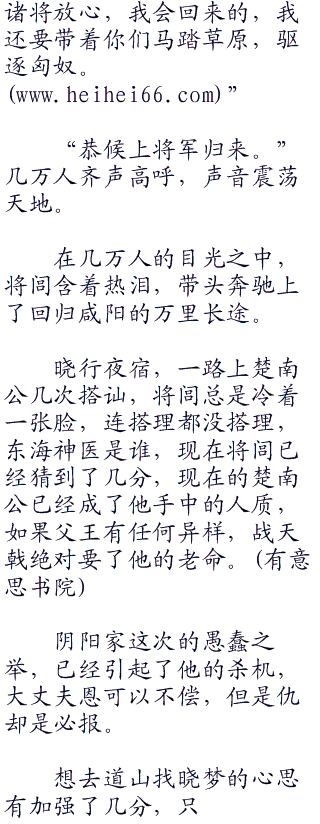 诸将放心，我会回来的，我
还要带着你们马踏草原，驱
逐匈奴。
(www.heihei66.com)”
“恭候上将军归来。”
几万人齐声高呼，声音震荡
天地。
在几万人的目光之中，
将闾含着热泪，带头奔驰上
了回归咸阳的万里长途。
晓行夜宿，一路上楚南
公几次搭讪，将闾总是冷着
一张脸，连搭理都没搭理，
东海神医是谁，现在将闾已
经猜到了几分，现在的楚南
公已经成了他手中的人质，
如果父王有任何异样，战天
戟绝对要了他的老命。(有意
思书院)
阴阳家这次的愚蠢之
举，已经引起了他的杀机，
大丈夫恩可以不偿，但是仇
却是必报。
想去道山找晓梦的心思
有加强了几分，只